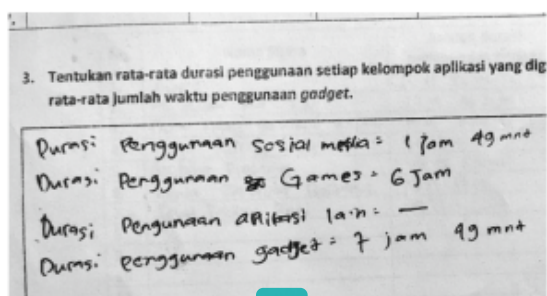 3. Tentukan rata-rata durasi penggunaan setiap kelompok aplikasi yang dig
rata-rata jumlah waktu penggunaan gadget.
Durasi Penggunaan Sosial media = 1 jam 49 mnt
Durasi Penggunaan Games = 6 Jam
Durasi Pengunaan aplikasi lain = —
Durasi penggunaan gadget = 7 jam 49 mnt